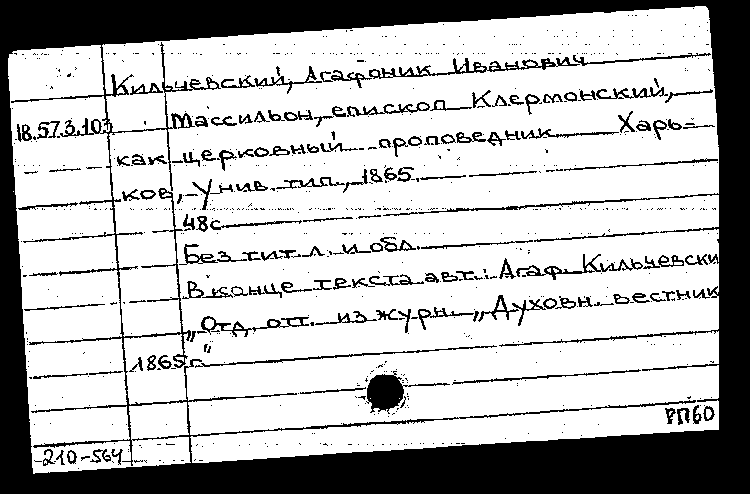 Кильчевский, Агафоник Иванович
18.573.103 Массильон, епископ Клермонский,
как церковный проповедник Харь=
ков, Унив. тип., 1865.
48с
Без тит. л. и обл.
В конце текста авт.: Агаф. Кильчевски
„Отд. отт. из журн. „Духовн. вестник
1865г."
РП60
210-564